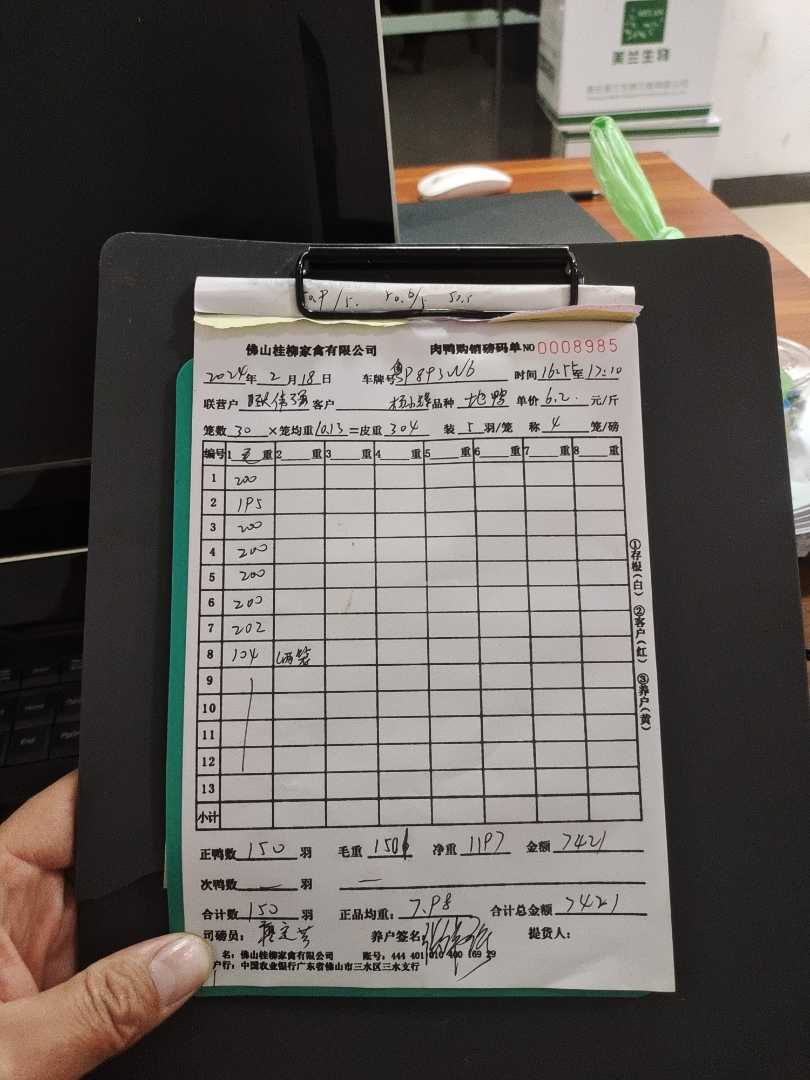 美兰生物
50.5
佛山桂柳家禽有限公司 肉鸭购销磅码单 NO 0008985
2024年2月18日 车牌号 粤P893N6 时间16:55至17:10
联营户 客户 杨 品种 地鸭 单价6.2.元/斤
笼数30×笼均重10.13=皮重304 装5羽/笼 称4笼/磅
编号 1毛重 2 重 3 重 4 重 5 重 6 重 7 重 8 重
1 200
2 195
3 200
4 200
5 200
6 200
7 202
8 104 (两笼
9
10
11
12
13
小计
正鸭数150羽 毛重1501 净重1197 金额7421
次鸭数—羽 —
合计数150羽 正品均重:7.98 合计总金额7421
司磅员: 养户签名: 提货人:
名:佛山桂柳家禽有限公司 账号:444 401 010 400 169 29
户行:中国农业银行广东省佛山市三水区三水支行
①存根(白) ②客户(红) ③养户(黄)